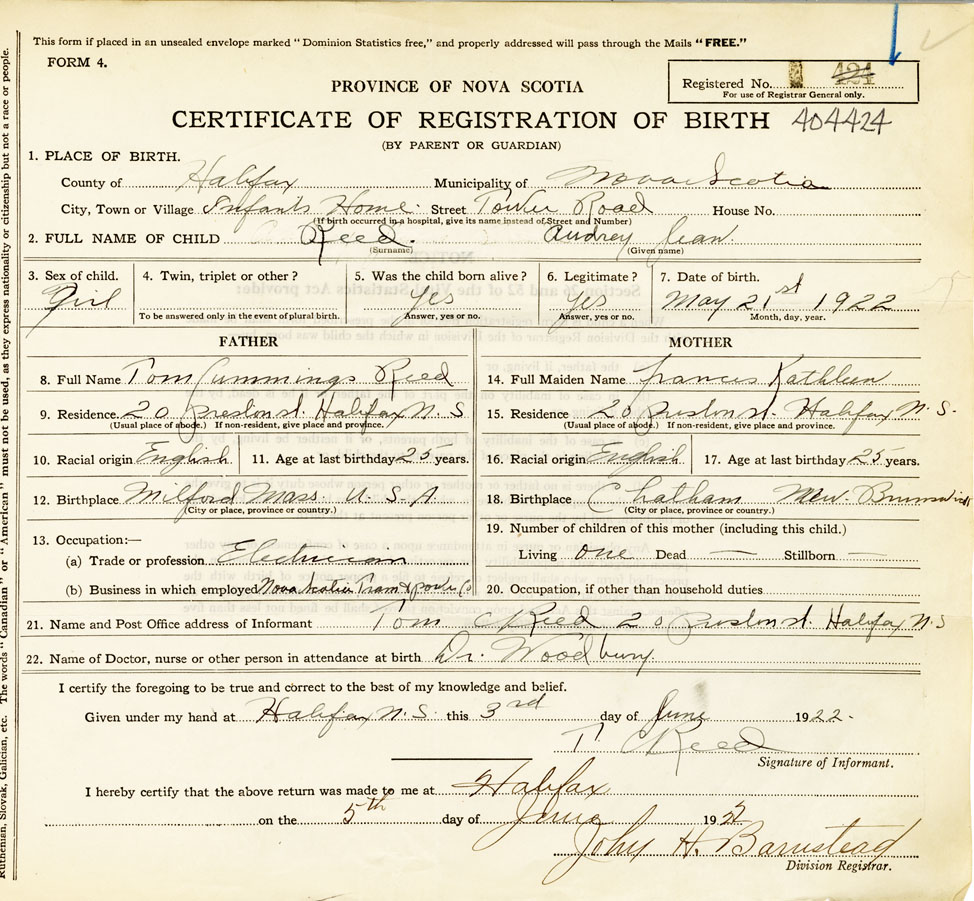 This form if placed in an unsealed envelope marked "Dominion Statistics free," and properly addressed will pass through the Mails "FREE."
FORM 4.
PROVINCE OF NOVA SCOTIA
Registered No. 424
For use of Registrar General only.
CERTIFICATE OF REGISTRATION OF BIRTH 404424
(BY PARENT OR GUARDIAN)
1. PLACE OF BIRTH.
County of Halifax Municipality of Nova Scotia
City, Town or Village Infants Home Street Tower Road House No.
(If birth occurred in a hospital, give its name instead of Street and Number)
2. FULL NAME OF CHILD Reed. Audrey Jean.
(Surname) (Given name)
3. Sex of child. 4. Twin, triplet or other? 5. Was the child born alive? 6. Legitimate? 7. Date of birth.
Girl yes yes May 21st 1922
To be answered only in the event of plural birth. Answer, yes or no. Answer, yes or no. Month, day, year.
FATHER MOTHER
8. Full Name Tom Cummings Reed 14. Full Maiden Name Francis Kathleen
9. Residence 20 Preston st. Halifax N. S 15. Residence 20 Preston st. Halifax N. S.
(Usual place of abode.) If non-resident, give place and province. (Usual place of abode.) If non-resident, give place and province.
10. Racial origin English 11. Age at last birthday 25 years. 16. Racial origin English 17. Age at last birthday 25 years.
12. Birthplace Milford Mass. U. S. A 18. Birthplace Chatham New. Brunswick
(City or place, province or country.) (City or place, province or country.)
13. Occupation:— 19. Number of children of this mother (including this child.)
(a) Trade or profession Electrician Living one Dead — Stillborn —
(b) Business in which employed Nova Scotia Tram & Power Co 20. Occupation, if other than household duties
21. Name and Post Office address of Informant Tom C Reed 20 Preston st. Halifax N. S
22. Name of Doctor, nurse or other person in attendance at birth Dr. Woodbury
I certify the foregoing to be true and correct to the best of my knowledge and belief.
Given under my hand at Halifax N. S. this 3rd day of June 1922.
T. C Reed
Signature of Informant.
I hereby certify that the above return was made to me at Halifax
on the 5th day of June 1922
John H. Barnstead
Division Registrar.
Ruthenian, Slovak, Galician, etc. The words "Canadian" or "American" must not be used, as they express nationality or citizenship but not a race or people.